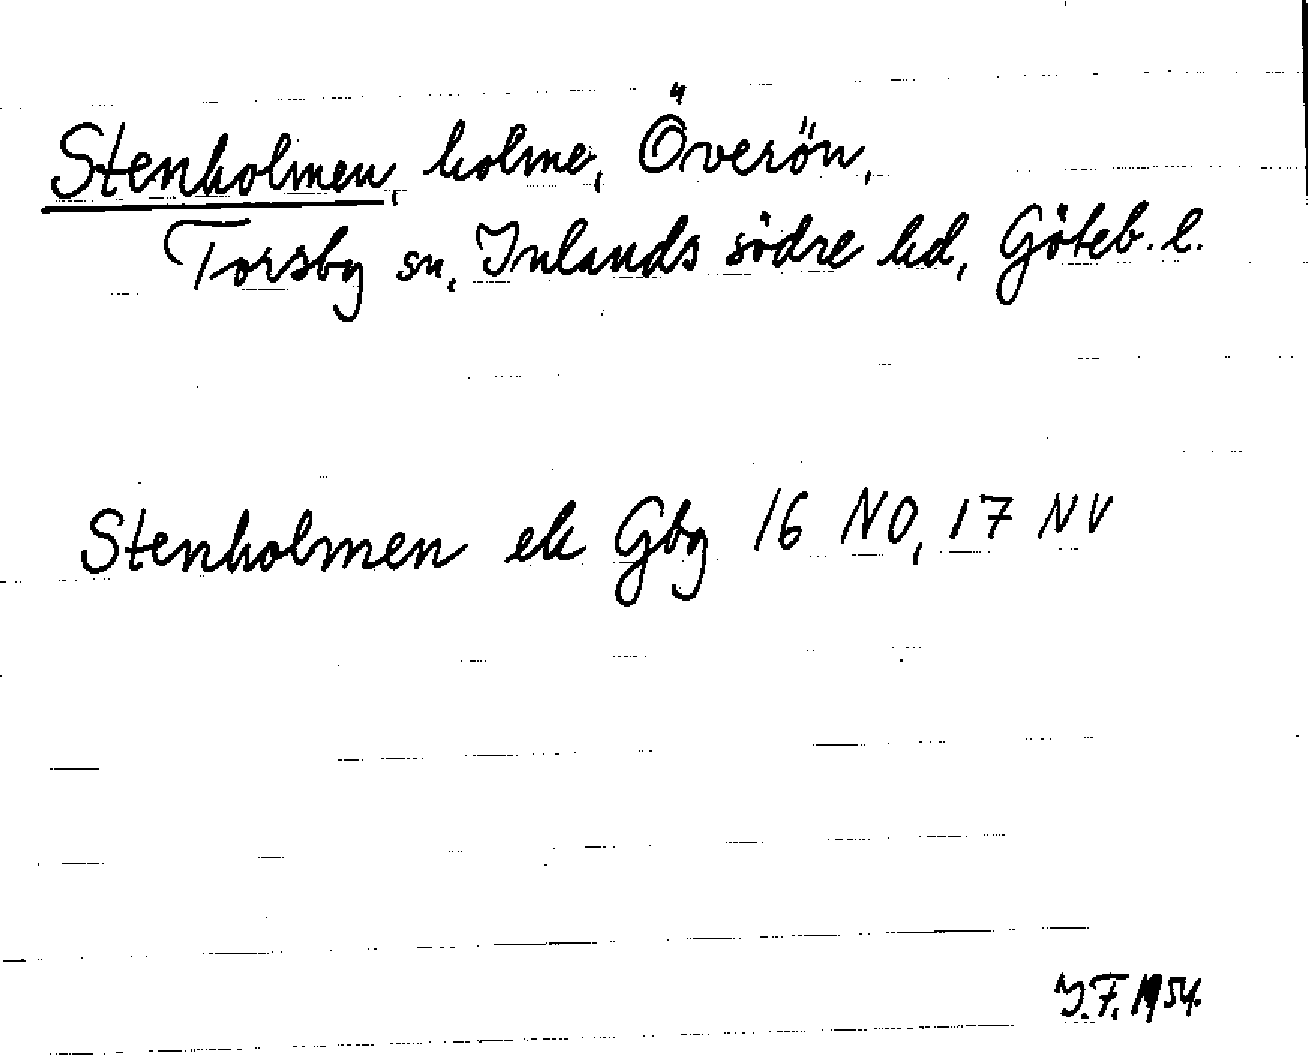 Stenholmen, holme, Överön,
Torsby sn, Inlands södre hd, Göteb. l.
Stenholmen ek Gbg 16 NO, 17 NV
I.F. 1954.